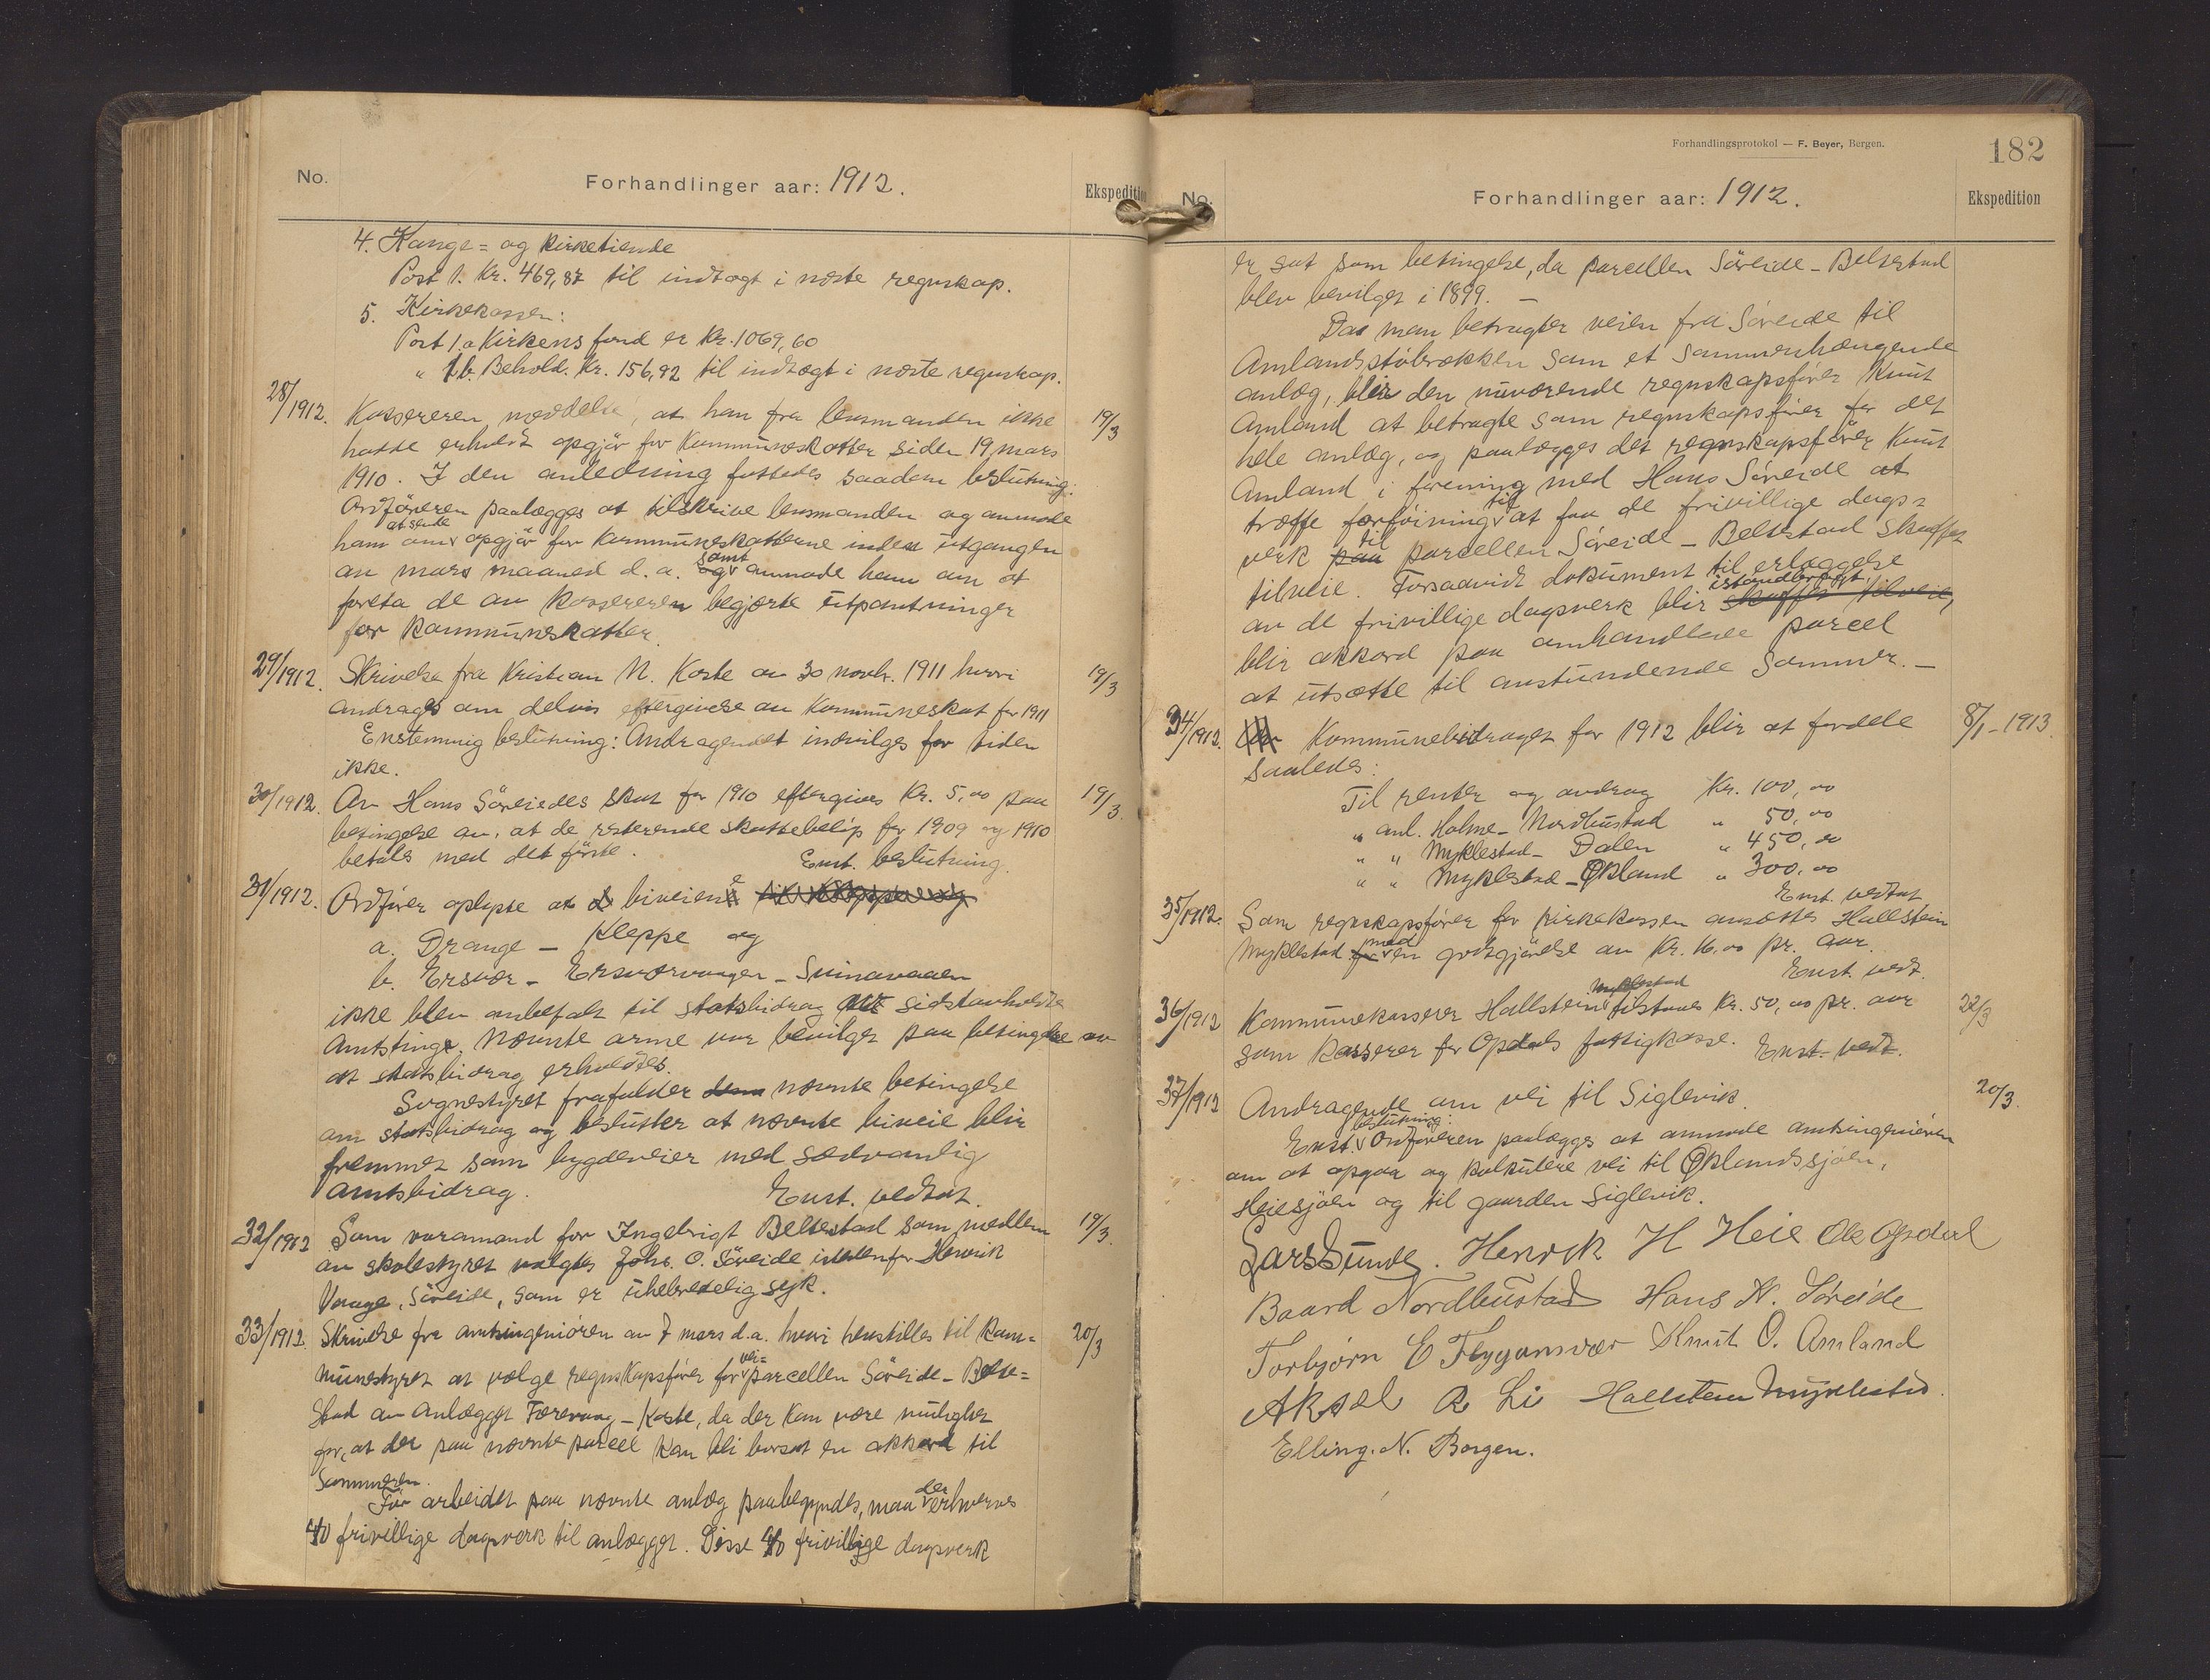 No. Forhandlinger aar: 1912. Ekspedition
4. Konge= og kirketiende
Post 1. Kr. 469,87 til indtægt i næste regnskap.
5. Kirkekassen:
Post 1.a Kirkens fond er Kr. 1069,60
" 1.b. Behold. Kr. 156,92 til indtægt i næste regnskap.
28/1912. Kassereren meddelte, at han fra lensmanden ikke 19/3
hadde erholdt opgjør for kommuneskatter siden 19 mars
1910. I den anledning fattedes saadan beslutning:
Ordføreren paalægges at tilskrive lensmanden og anmode
ham om at sende opgjør for kommuneskatterne inden utgangen
av mars maaned d.a. samt anmode ham om at
foreta de av kassereren begjærte utpantninger
for kommuneskatter.
29/1912. Skrivelse fra Kristian N. Koste av 30 novbr. 1911 hvori 19/3
andrages om delvis eftergivelse av kommuneskat for 1911
Enstemmig beslutning: Andragendet indvilges for tiden
ikke.
30/1912. Av Hans Söreides skat for 1910 eftergives Kr. 5,00 paa 19/3.
betingelse av, at de resterende skattebeløp for 1909 og 1910
betales med det første. Enst. beslutning.
31/1912. Ordfører oplyste at biveiene
a. Drange — Kleppe og
b. Ersvær — Ersværvaagen — Svinavaagen
ikke blev anbefalt til statsbidrag sidstavholdte
Amtsting. Nævnte arme var bevilget paa betingelse av
at statsbidrag erholdes.
Sognestyret frafalder nævnte betingelse
om statsbidrag og beslutter at nævnte biveie blir
fremmet som bygdeveier med sædvanlig
amtsbidrag. Enst. vedtat.
32/1912 Som varamand for Ingebrigt Belsestad som medlem 19/3.
av skolestyret valgtes Johs. O. Söreide istedenfor Henrik
Vange, Söreide, som er uhelbredelig syk.
33/1912. Skrivelse fra amtsingeniøren av 7 mars d.a. hvori henstilles til kom= 20/3
munestyret at vælge regnskapsfører for vei= parcellen Söreide — Belse=
stad av anlægget Færevaag — Koste, da der kan være mulighet
for, at der paa nævnte parcel kan bli bortsat en akkord til
Sommeren.
Før arbeidet paa nævnte anlæg paabegyndes, maa der erhverves
40 frivillige dagsverk til anlægget. Disse 40 frivillige dagsverk
Forhandlingsprotokol — F. Beyer, Bergen.
182
No. Forhandlinger aar: 1912. Ekspedition
er sat som betingelse, da parcellen Söreide — Belsestad
blev bevilget i 1899. —
Da man betragter veien fra Söreide til
Amlandsstøbrækken som et sammenhængende
anlæg, blir den nuværende regnskapsfører Knut
Amland at betragte som regnskapsfører for det
hele anlæg, og paalægges det regnskapsfører Knut
Amland i forening med Hans Söreide at
træffe forføining til at faa de frivillige dags=
verk til parcellen Söreide — Belsestad skaffet
tilveie. Forsaavidt dokument til erlæggelse
av de frivillige dagsverk blir istandbragt,
blir akkord paa omhandlede parcel
at utsætte til anstundende sommer. —
34/1912. Kommunebidraget for 1912 blir at fordele 8/1 - 1913.
saaledes:
Til renter og avdrag Kr. 100,00
" anl. Holme — Nordhustad " 50,00
" " Myklestad — Dalen " 450,00
" " Myklestad — Økland " 300,00
Enst. vedtat
35/1912. Som regnskapsfører for kirkekassen ansættes Hallstein
Myklestad med en godtgjørelse av Kr. 16.00 pr. aar.
Enst. vedt.
36/1912 Kommunekasserer Hallstein Myklestad tilstaaes Kr. 50,00 pr. aar 22/3
som kasserer for Opdals fattigkasse. Enst. vedt.
37/1912 Andragende om vei til Siglevik. 20/3.
Enst. beslutning: Ordføreren paalægges at anmode amtsingeniøren
om at opgaa og kalkulere vei til Øklandssjøen,
Heiesjøen og til gaarden Siglevik.
Lars Sunde. Henrik H Heie Ole Opdal
Baard Nordhustad Hans N. Søreide
Torbjørn E Flygansvær Knut O. Amland
Aksel R. Li Hallstein Myklestad.
Elling. N. Borgen.